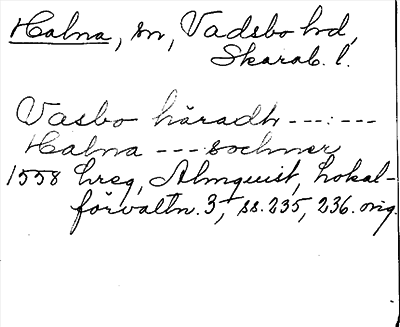 Halna, sn, Vadsbo hd,
Skarab. l.
Vasbo häradh ---:---
Halna --- sochner
1558 hreg, Almquist, Lokal-
förvaltn. 3, ss. 235, 236. orig.